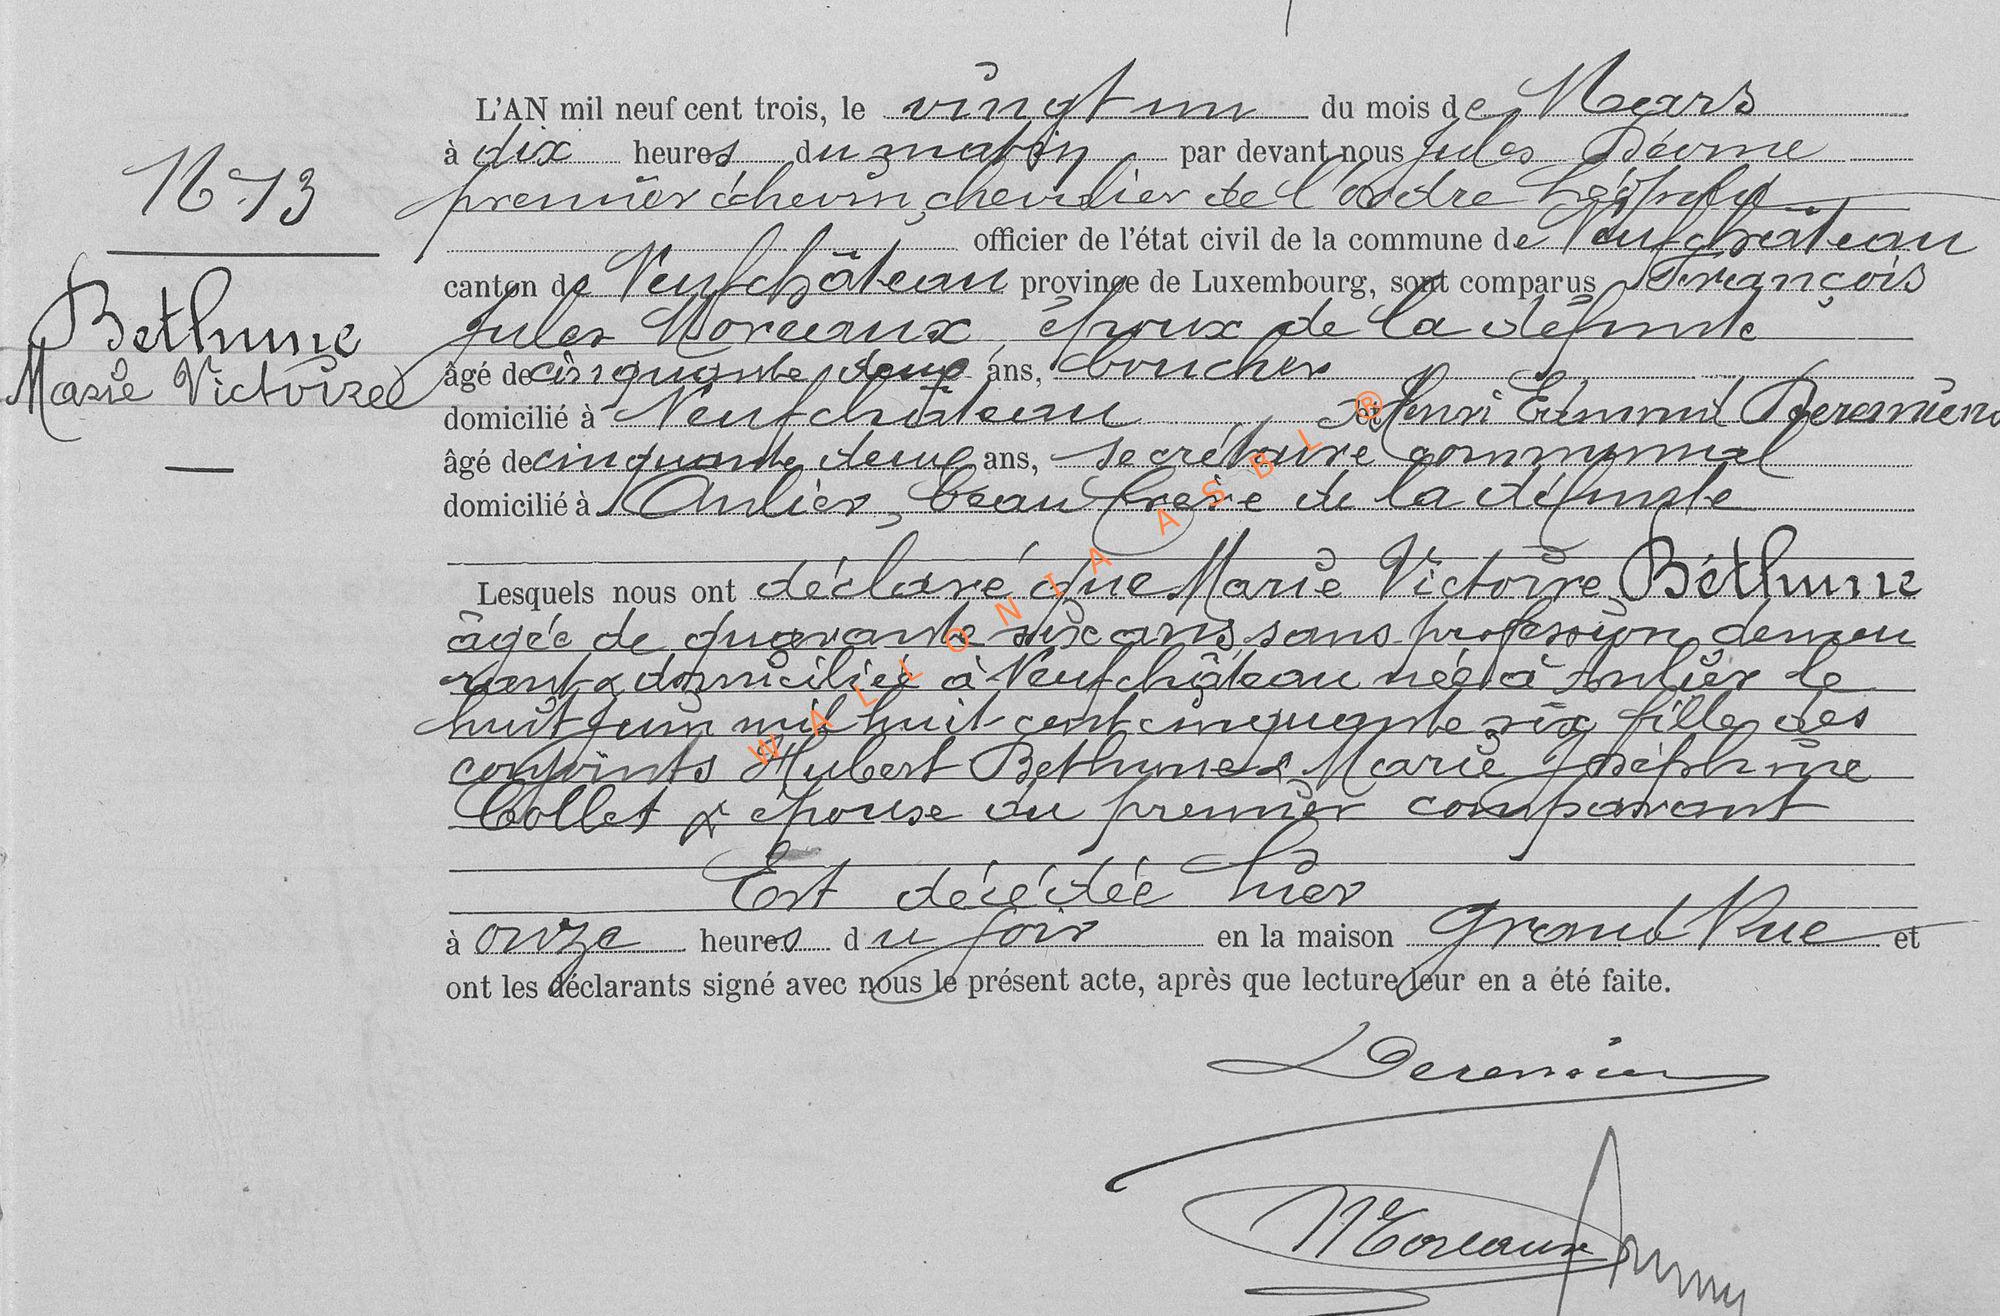 N° 13
Bethune
Marie Victoire
L'AN mil neuf cent trois, le vingt un du mois de Mars
à dix heures du matin par devant nous Jules
premier échevin, chevalier de l'ordre Léopold
officier de l'état civil de la commune de Neufchâteau
canton de Neufchâteau province de Luxembourg, sont comparus François
Jules Moreaux, époux de la défunte
âgé de cinquante deux ans, boucher
domicilié à Neufchâteau et Henri Edmond
âgé de cinquante deux ans, secrétaire communal
domicilié à Anlier, beau frère de la défunte
Lesquels nous ont déclaré que Marie Victoire Béthune
âgée de quarante six ans, sans profession, demeu
rant & domiciliée à Neufchâteau née à Anlier le
huit juin mil huit cent cinquante six fille des
conjoints Hubert Bethune & Marie Joséphine
Collet & épouse du premier comparant
Est décédée hier
à onze heures du soir en la maison Grand Rue et
ont les déclarants signé avec nous le présent acte, après que lecture leur en a été faite.
Moreaux
WALLONIA ASBL ®